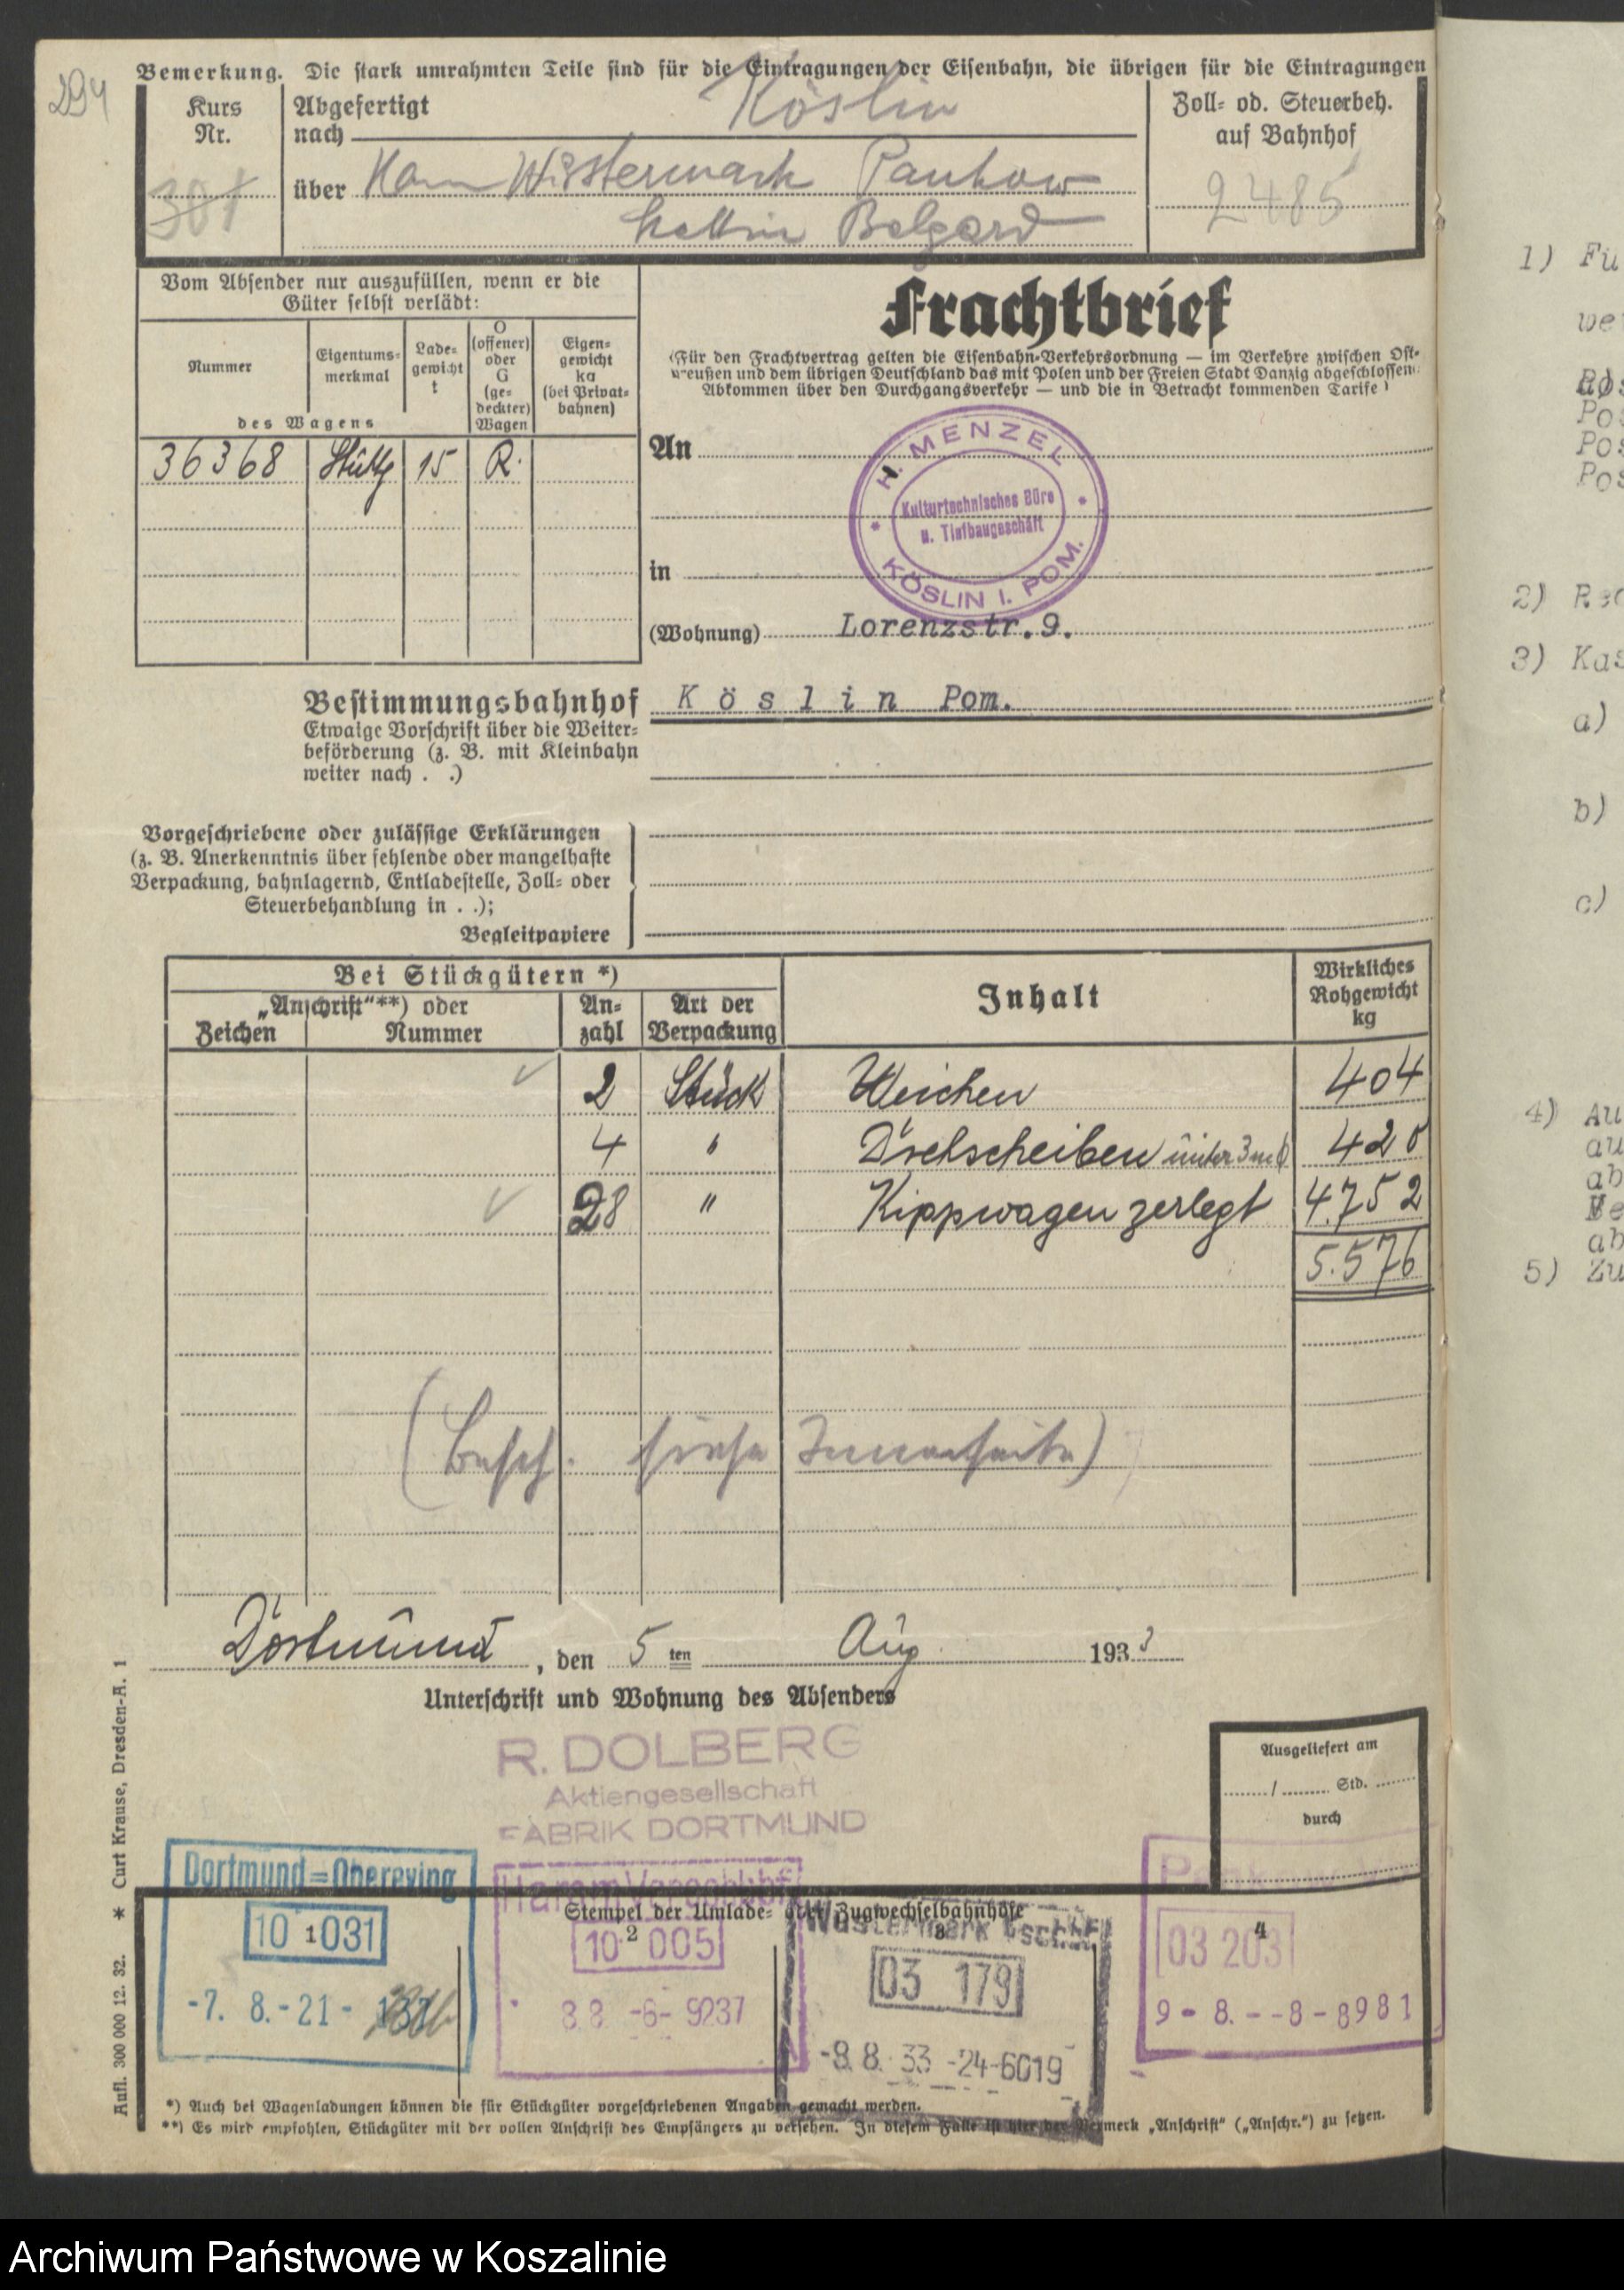 294
Bemerkung. Die stark umrahmten Teile sind für die Eintragungen der Eisenbahn, die übrigen für die Eintragungen
Kurs
Nr.
Abgefertigt
nach Köslin
über Hamm Wustermark Pankow
Stettin Belgard
Zoll- od. Steuerbeh.
auf Bahnhof
2485
Vom Absender nur auszufüllen, wenn er die
Güter selbst verlädt:
Nummer
Eigentums-
merkmal
Lade-
gewicht
t
O
(offener)
oder
G
(ge-
deckter)
Wagen
Eigen-
gewicht
kg
(bei Privat-
bahnen)
des Wagens
36368 Stuttg 15 R.
Frachtbrief
(Für den Frachtvertrag gelten die Eisenbahn-Verkehrsordnung — im Verkehre zwischen Ost-
preußen und dem übrigen Deutschland das mit Polen und der Freien Stadt Danzig abgeschlossene
Abkommen über den Durchgangsverkehr — und die in Betracht kommenden Tarife)
An
H. MENZEL
Kulturtechnisches Büro
u. Tiefbaugeschäft
KÖSLIN I. POM.
in
(Wohnung) Lorenzstr.9.
Bestimmungsbahnhof K ö s l i n Pom.
Etwaige Vorschrift über die Weiter-
beförderung (z. B. mit Kleinbahn
weiter nach . .)
Vorgeschriebene oder zulässige Erklärungen
(z. B. Anerkenntnis über fehlende oder mangelhafte
Verpackung, bahnlagernd, Entladestelle, Zoll- oder
Steuerbehandlung in . .);
Begleitpapiere
Bei Stückgütern *)
„Anschrift“**) oder
Zeichen Nummer
An-
zahl
Art der
Verpackung
Inhalt
Wirkliches
Rohgewicht
kg
2 Stück Weichen 404
4 " Drehscheiben unter 3m Ø 420
28 " Kippwagen zerlegt 4.752
5.576
(Besch. siehe Innenseite)
Dortmund, den 5 ten Aug. 1933
Unterschrift und Wohnung des Absenders
R. DOLBERG
Aktiengesellschaft
FABRIK DORTMUND
Ausgeliefert am
/ Std.
durch
Dortmund=Obereving
10 031
-7. 8.-21-
Stempel der Umlade- oder Zugwechselbahnhöfe
1 2 3 4
Hamm Verschbhf
10 005
8 8 -6- 9237
Wustermark Vschbf
03 179
-8 8. 33 -24-6019
03 203
9-8.--8-8981
*) Auch bei Wagenladungen können die für Stückgüter vorgeschriebenen Angaben gemacht werden.
**) Es wird empfohlen, Stückgüter mit der vollen Anschrift des Empfängers zu versehen. In diesem Falle ist hier der Vermerk „Anschrift“ („Anschr.“) zu setzen.
Aufl. 300 000 12. 32. * Curt Krause, Dresden-A. 1
1) Fü
we
Pos
Pos
Pos
2) Rec
3) Kas
a)
b)
c)
4) Au
au
ab
Ve
ab
5) Zu
Archiwum Państwowe w Koszalinie